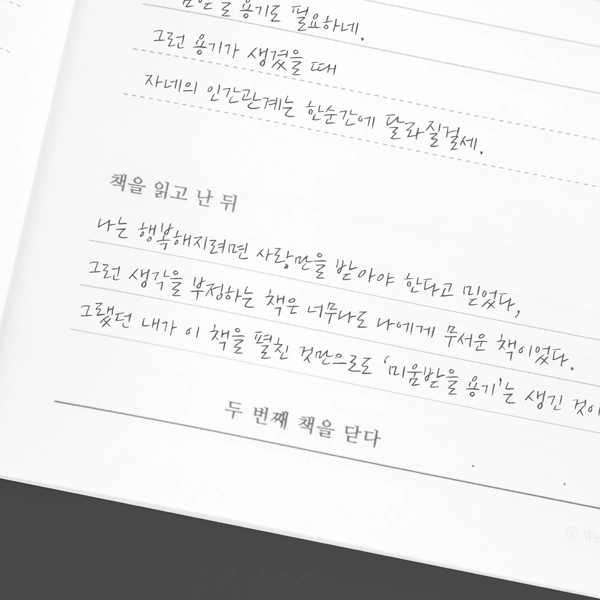 용기도 필요하네.
그런 용기가 생겼을 때
자네의 인간관계는 한순간에 달라질걸세.
책을 읽고 난 뒤
나는 행복해지려면 사랑만을 받아야 한다고 믿었다,
그런 생각을 부정하는 책은 너무나도 나에게 무서운 책이었다.
그랬던 내가 이 책을 펼친 것만으로도 ‘미움받을 용기’는 생긴
두 번째 책을 닫다